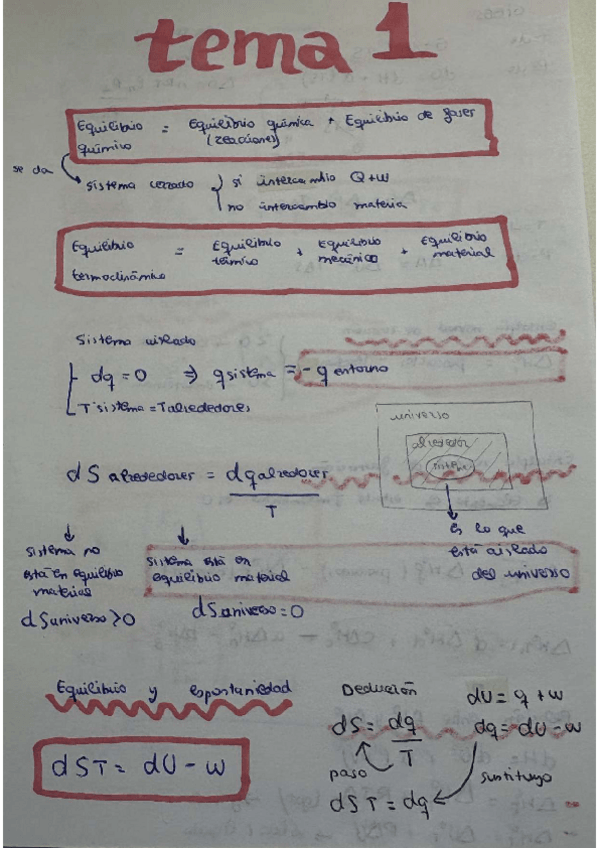 tema 1
Equilibrio = Equilibrio química + Equilibrio de fases
químico (reacciones)
se da
sistema cerrado { si intercambio Q+W
no intercambio materia
Equilibrio = Equilibrio + Equilibrio + Equilibrio
termodinámico térmico mecánico material
Sistema aislado
dq = 0 ⇒ q sistema = - q entorno
T sistema = T alrededores
universo
alrededor
sistema
dS alrededores = dq alrededores / T
es lo que
está aislado
del universo
sistema no
está en equilibrio
material
dS universo > 0
sistema está en
equilibrio material
dS universo = 0
Equilibrio y espontaniedad
dST = dU - w
Deducción
dS = dq / T
paso
dST = dq
dU = q + w
dq = dU - w
sustituyo